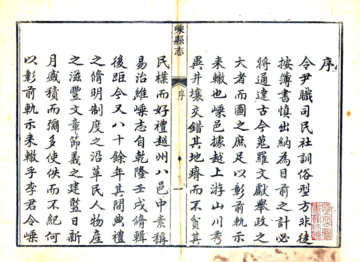 序
令尹職司民社訓俗型方非徒
按簿書慎出納為目前之計必
將通達古今蒐羅文獻舉政之
大者而圖之庶足以彰前軌示
来轍也嵊邑據越上游山川秀
異井壤交錯其地瘠而不貧其
嵊縣志
序
一
民樸而好禮越州八邑中素稱
易治維嵊志自乾隆壬戌脩輯
後距今又八十餘年其間典禮
之脩明制度之沿革民人物産
之滋豐文章節義之建豎日新
月盛積而彌多使佚而不紀何
以彰前軌示来轍乎李君令嵊